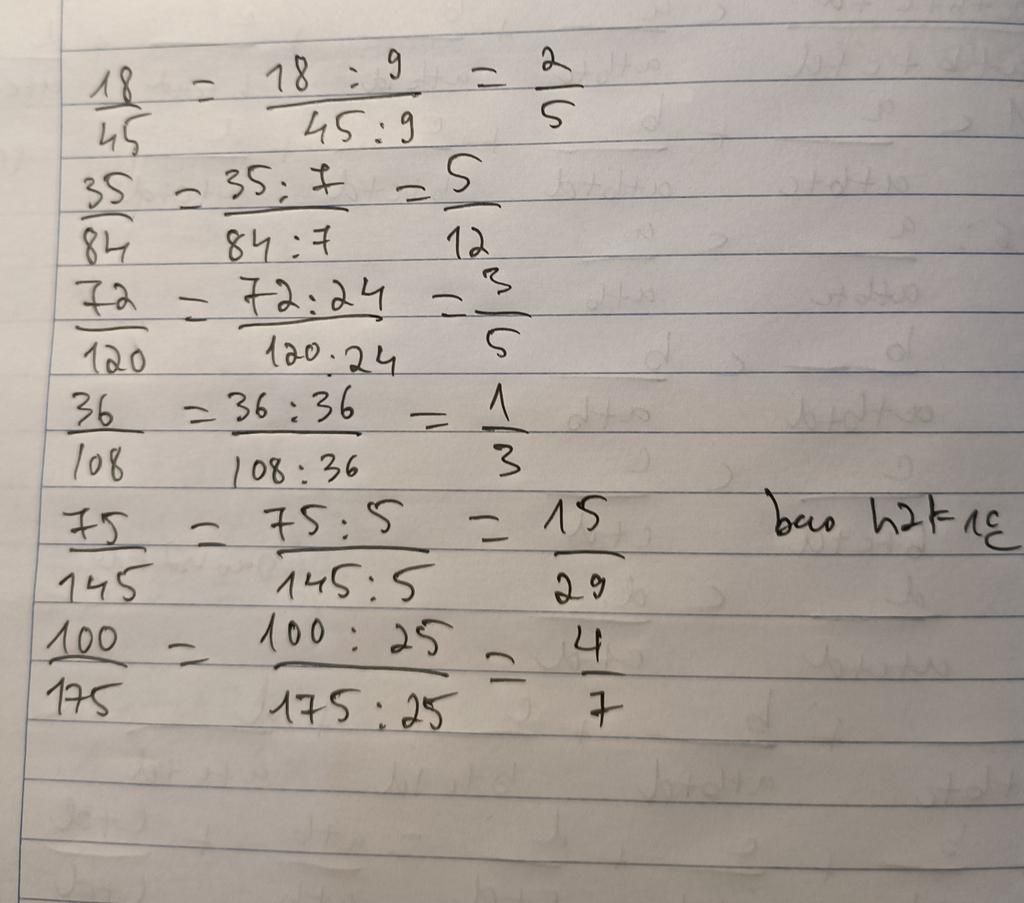 18/45 = 18 : 9 / 45 : 9 = 2/5
35/84 = 35 : 7 / 84 : 7 = 5/12
72/120 = 72 : 24 / 120 : 24 = 3/5
36/108 = 36 : 36 / 108 : 36 = 1/3
75/145 = 75 : 5 / 145 : 5 = 15/29
100/175 = 100 : 25 / 175 : 25 = 4/7